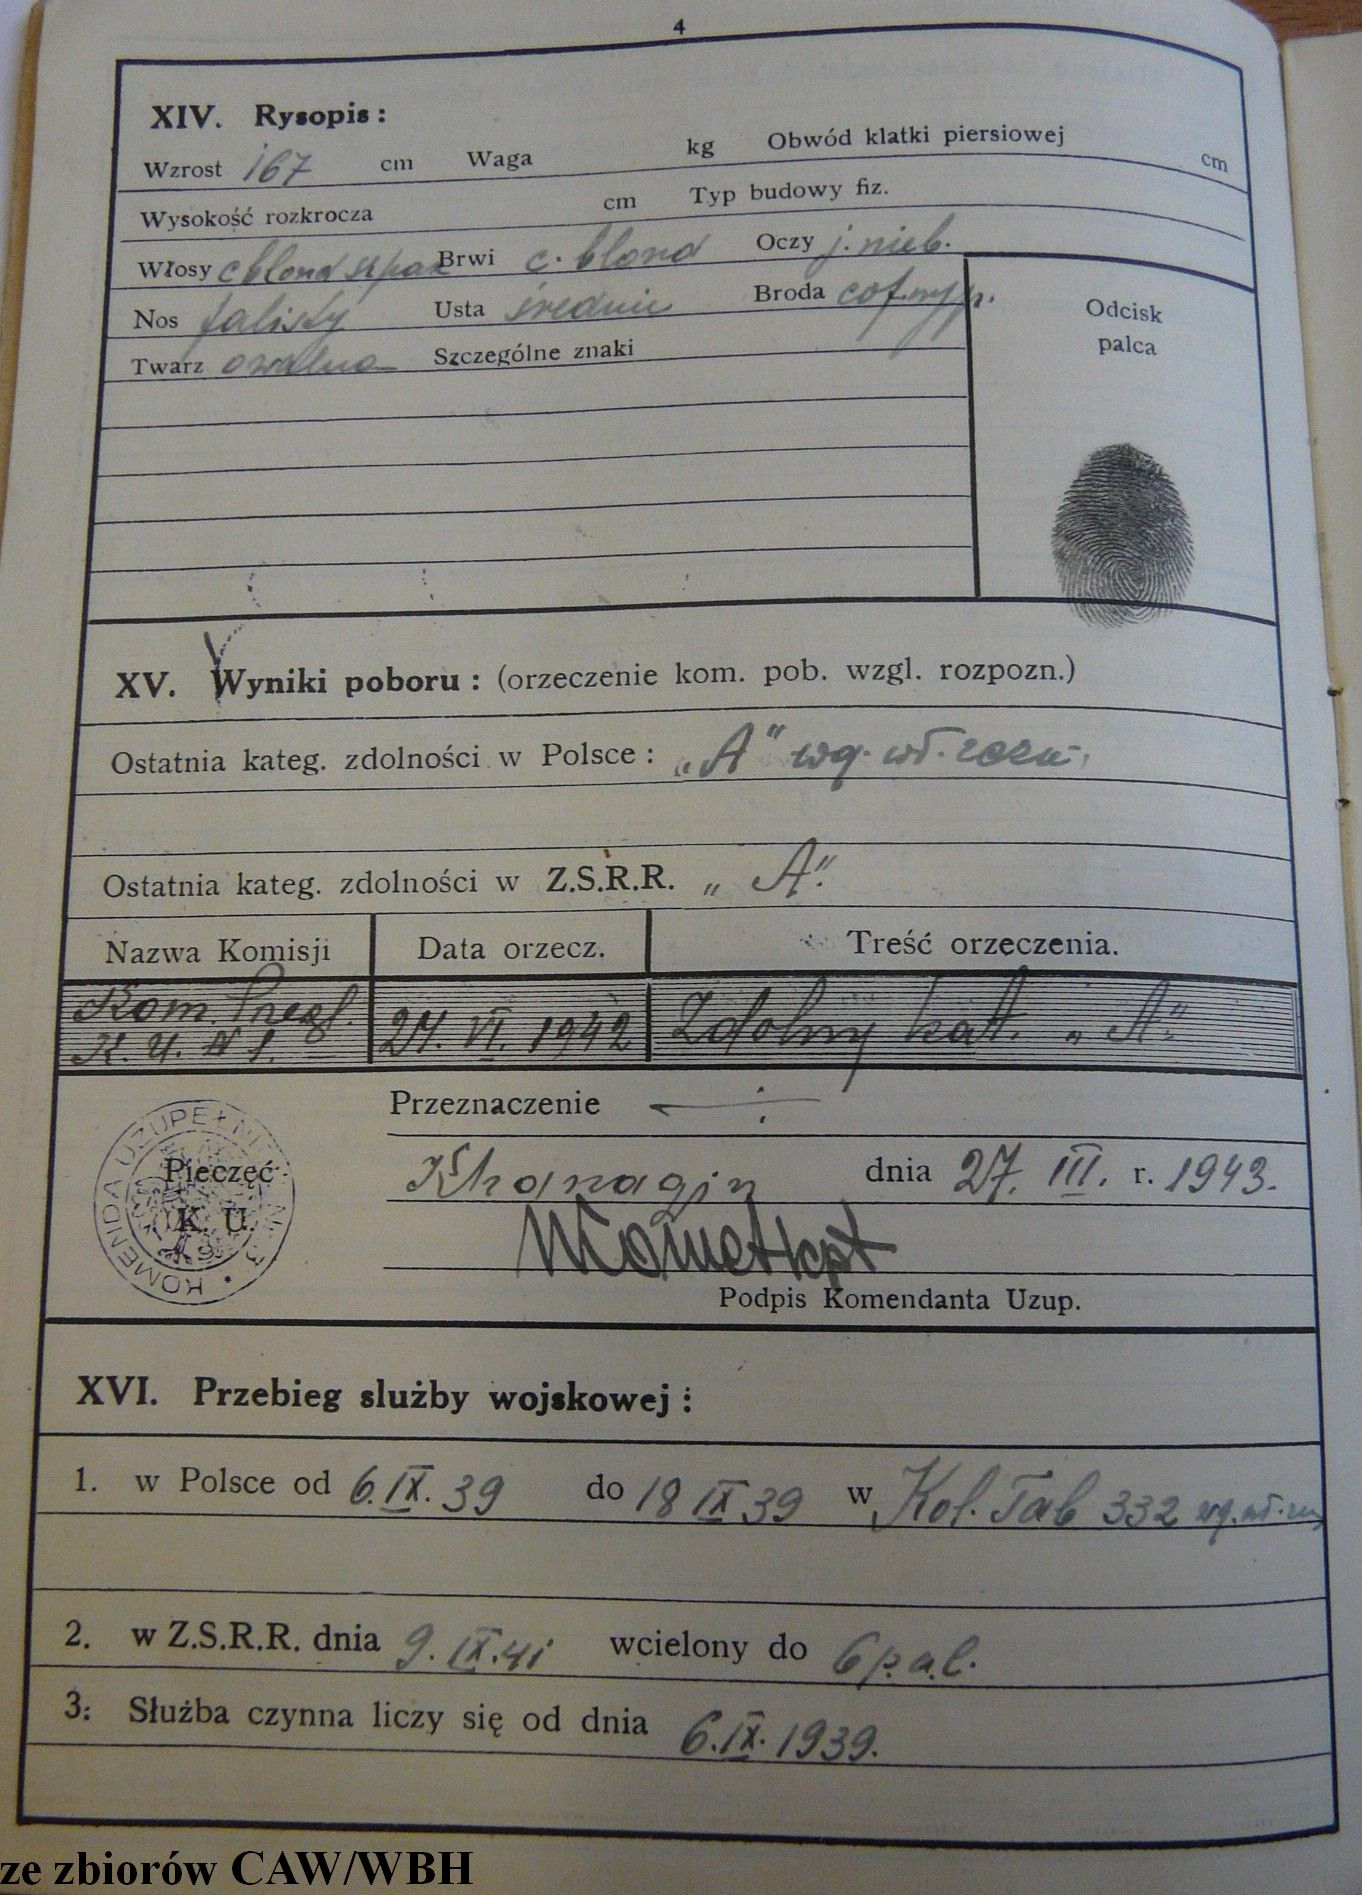 4
XIV. Rysopis :
Wzrost 167 cm Waga kg Obwód klatki piersiowej cm
Wysokość rozkrocza cm Typ budowy fiz.
Włosy c blond szpak Brwi c. blond Oczy j. nieb.
Nos falisty Usta średnie Broda
Twarz owalna Szczególne znaki
Odcisk
palca
XV. Wyniki poboru : (orzeczenie kom. pob. wzgl. rozpozn.)
Ostatnia kateg. zdolności w Polsce : „A" wg. wł. zezn.
Ostatnia kateg. zdolności w Z.S.R.R. „A".
Nazwa Komisji Data orzecz. Treść orzeczenia.
Kom. Przegl. 27. VI. 1942 Zdolny kat. „A".
K. U. N 1.
Przeznaczenie
KOMENDA UZUPEŁNIEŃ NR. 3
Pieczęć
K. U.
Khanagin dnia 27. III. r. 1943.
kpt
Podpis Komendanta Uzup.
XVI. Przebieg służby wojskowej :
1. w Polsce od 6.IX.39 do 18 IX 39 w Kol. Tab 332 wg. wł. zez
2. w Z.S.R.R. dnia 9.IX.41 wcielony do 6 p.a.l.
3. Służba czynna liczy się od dnia 6.IX.1939.
ze zbiorów CAW/WBH